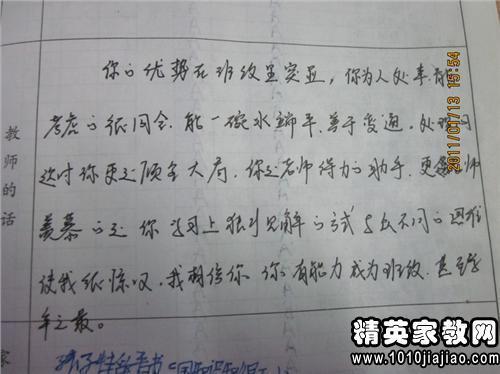 你的优势在班级里突显，你为人处事，能
考虑的很周全，能一碗水端平，善于变通。处理问
题时你更是顾全大局，你是老师得力的助手，更让老师
羡慕的是你学习上独到见解的方式与众不同的思维
使我很惊叹，我相信你 你有能力成为班级，甚至学
年之最。
教师的话
家
2011/01/13 15:54
精英家教网
www.1010jiajiao.com